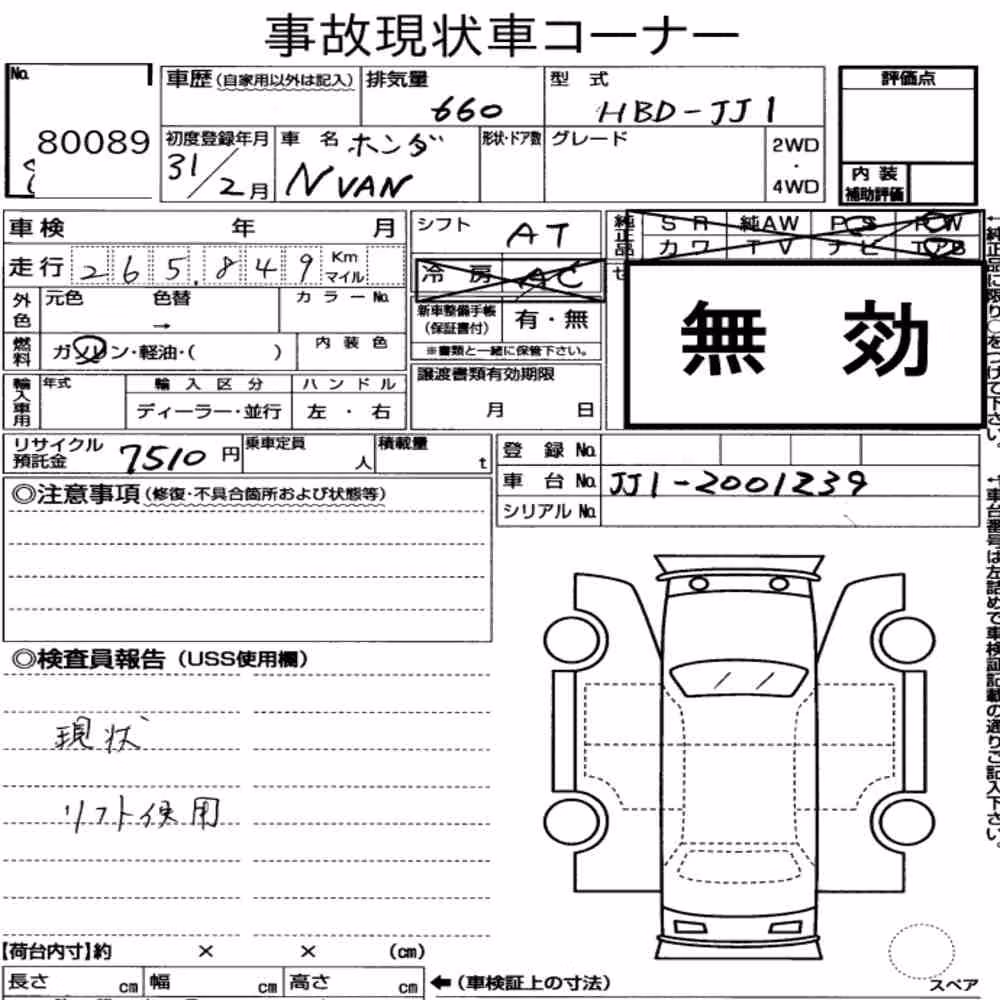 事故現状車コーナー
No.
80089
車歴(自家用以外は記入)
排気量
660
型式
HBD-JJ1
評価点
初度登録年月
31/2月
車名 ホンダ
N VAN
形状・ドア数
グレード
2WD
・
4WD
内装
補助評価
車検 年 月
走行 265,849 Km
マイル
シフト
AT
冷房 AC
純正品
SR 純AW PS PW
カワ TV ナビ
外色
元色 色替 →
カラーNo.
新車整備手帳
(保証書付)
有・無
※書類と一緒に保管下さい。
無効
燃料
ガソリン・軽油・( )
内装色
輸入車用
年式
輸入区分
ディーラー・並行
ハンドル
左・右
譲渡書類有効期限
月 日
←純正品に限り○をつけて下さい。
リサイクル
預託金
7510円
乗車定員
人
積載量
t
登録No.
車台No. JJ1-2001239
シリアルNo.
◎注意事項(修復・不具合箇所および状態等)
←車台番号は左詰めで車検証記載の通りご記入下さい。
◎検査員報告(USS使用欄)
現状
リフト使用
【荷台内寸】約 × × (cm)
長さ cm 幅 cm 高さ cm
←(車検証上の寸法)
スペア